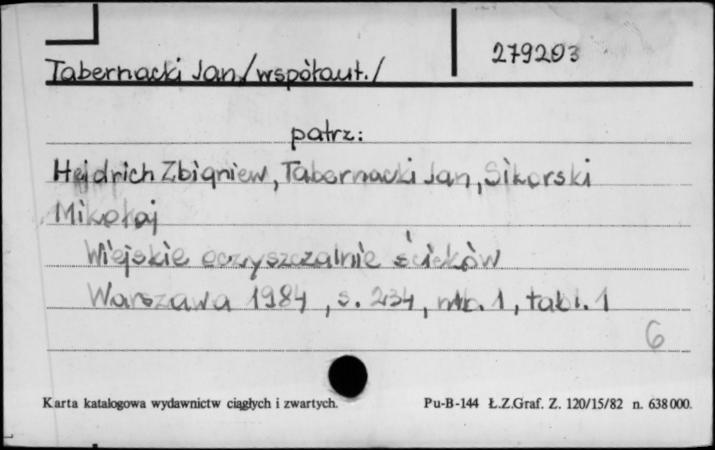 279203
Tabernacki Jan /współaut./
patrz:
Hejdrich Zbigniew, Tabernacki Jan, Sikorski
Mikołaj
Wiejskie oczyszczalnie ścieków
Warszawa 1984, s. 234, nlb. 1, tabl. 1
6
Karta katalogowa wydawnictw ciągłych i zwartych.
Pu-B-144 Ł.Z.Graf. Z. 120/15/82 n. 638000.